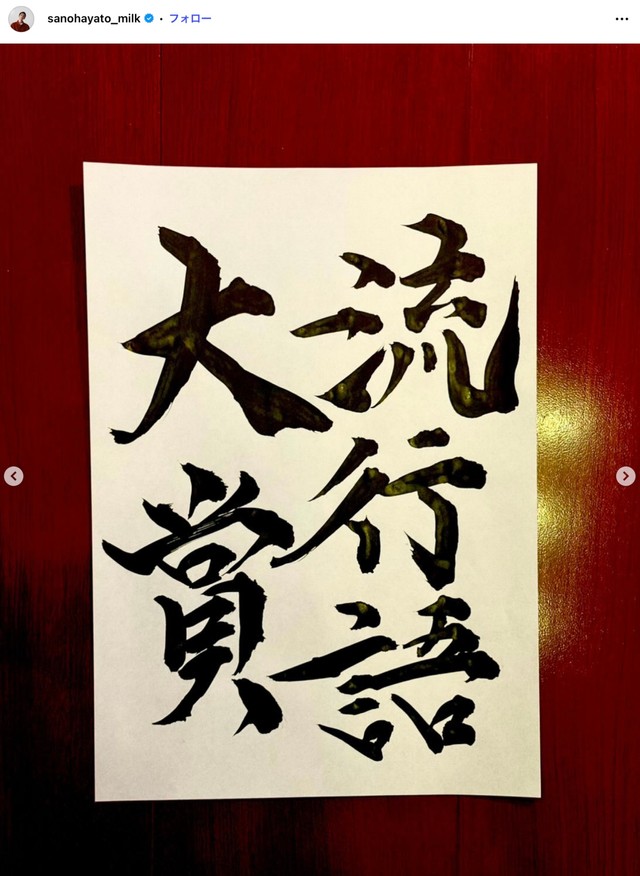 sanohayato_milk • フォロー
流行語
大賞